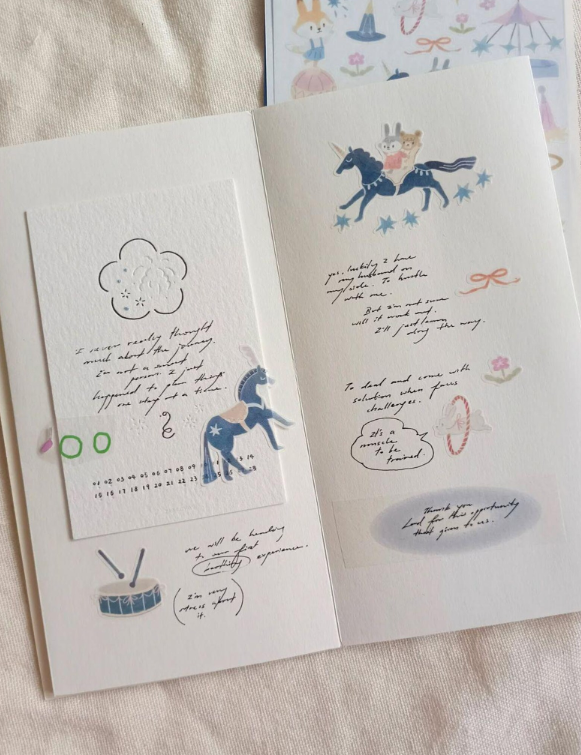 I never really thought
much about the journey.
I'm not a smart
person. I just
happened to plan things
one step at a time.
01 02 03 04 05 06 07 08 09 14
15 16 17 18 19 20 21 22 23 28
we will be heading
to our first
experience.
(I'm very
stress about
it.)
yes. luckily I have
my husband on
my side. To
with me.
But I'm not sure
will it work out.
I'll just learn
along the way.
To deal and come with
solution when faces
challenges.
It's a
muscle
to be
trained.
Thank you
Lord for this opportunity
that given to us.